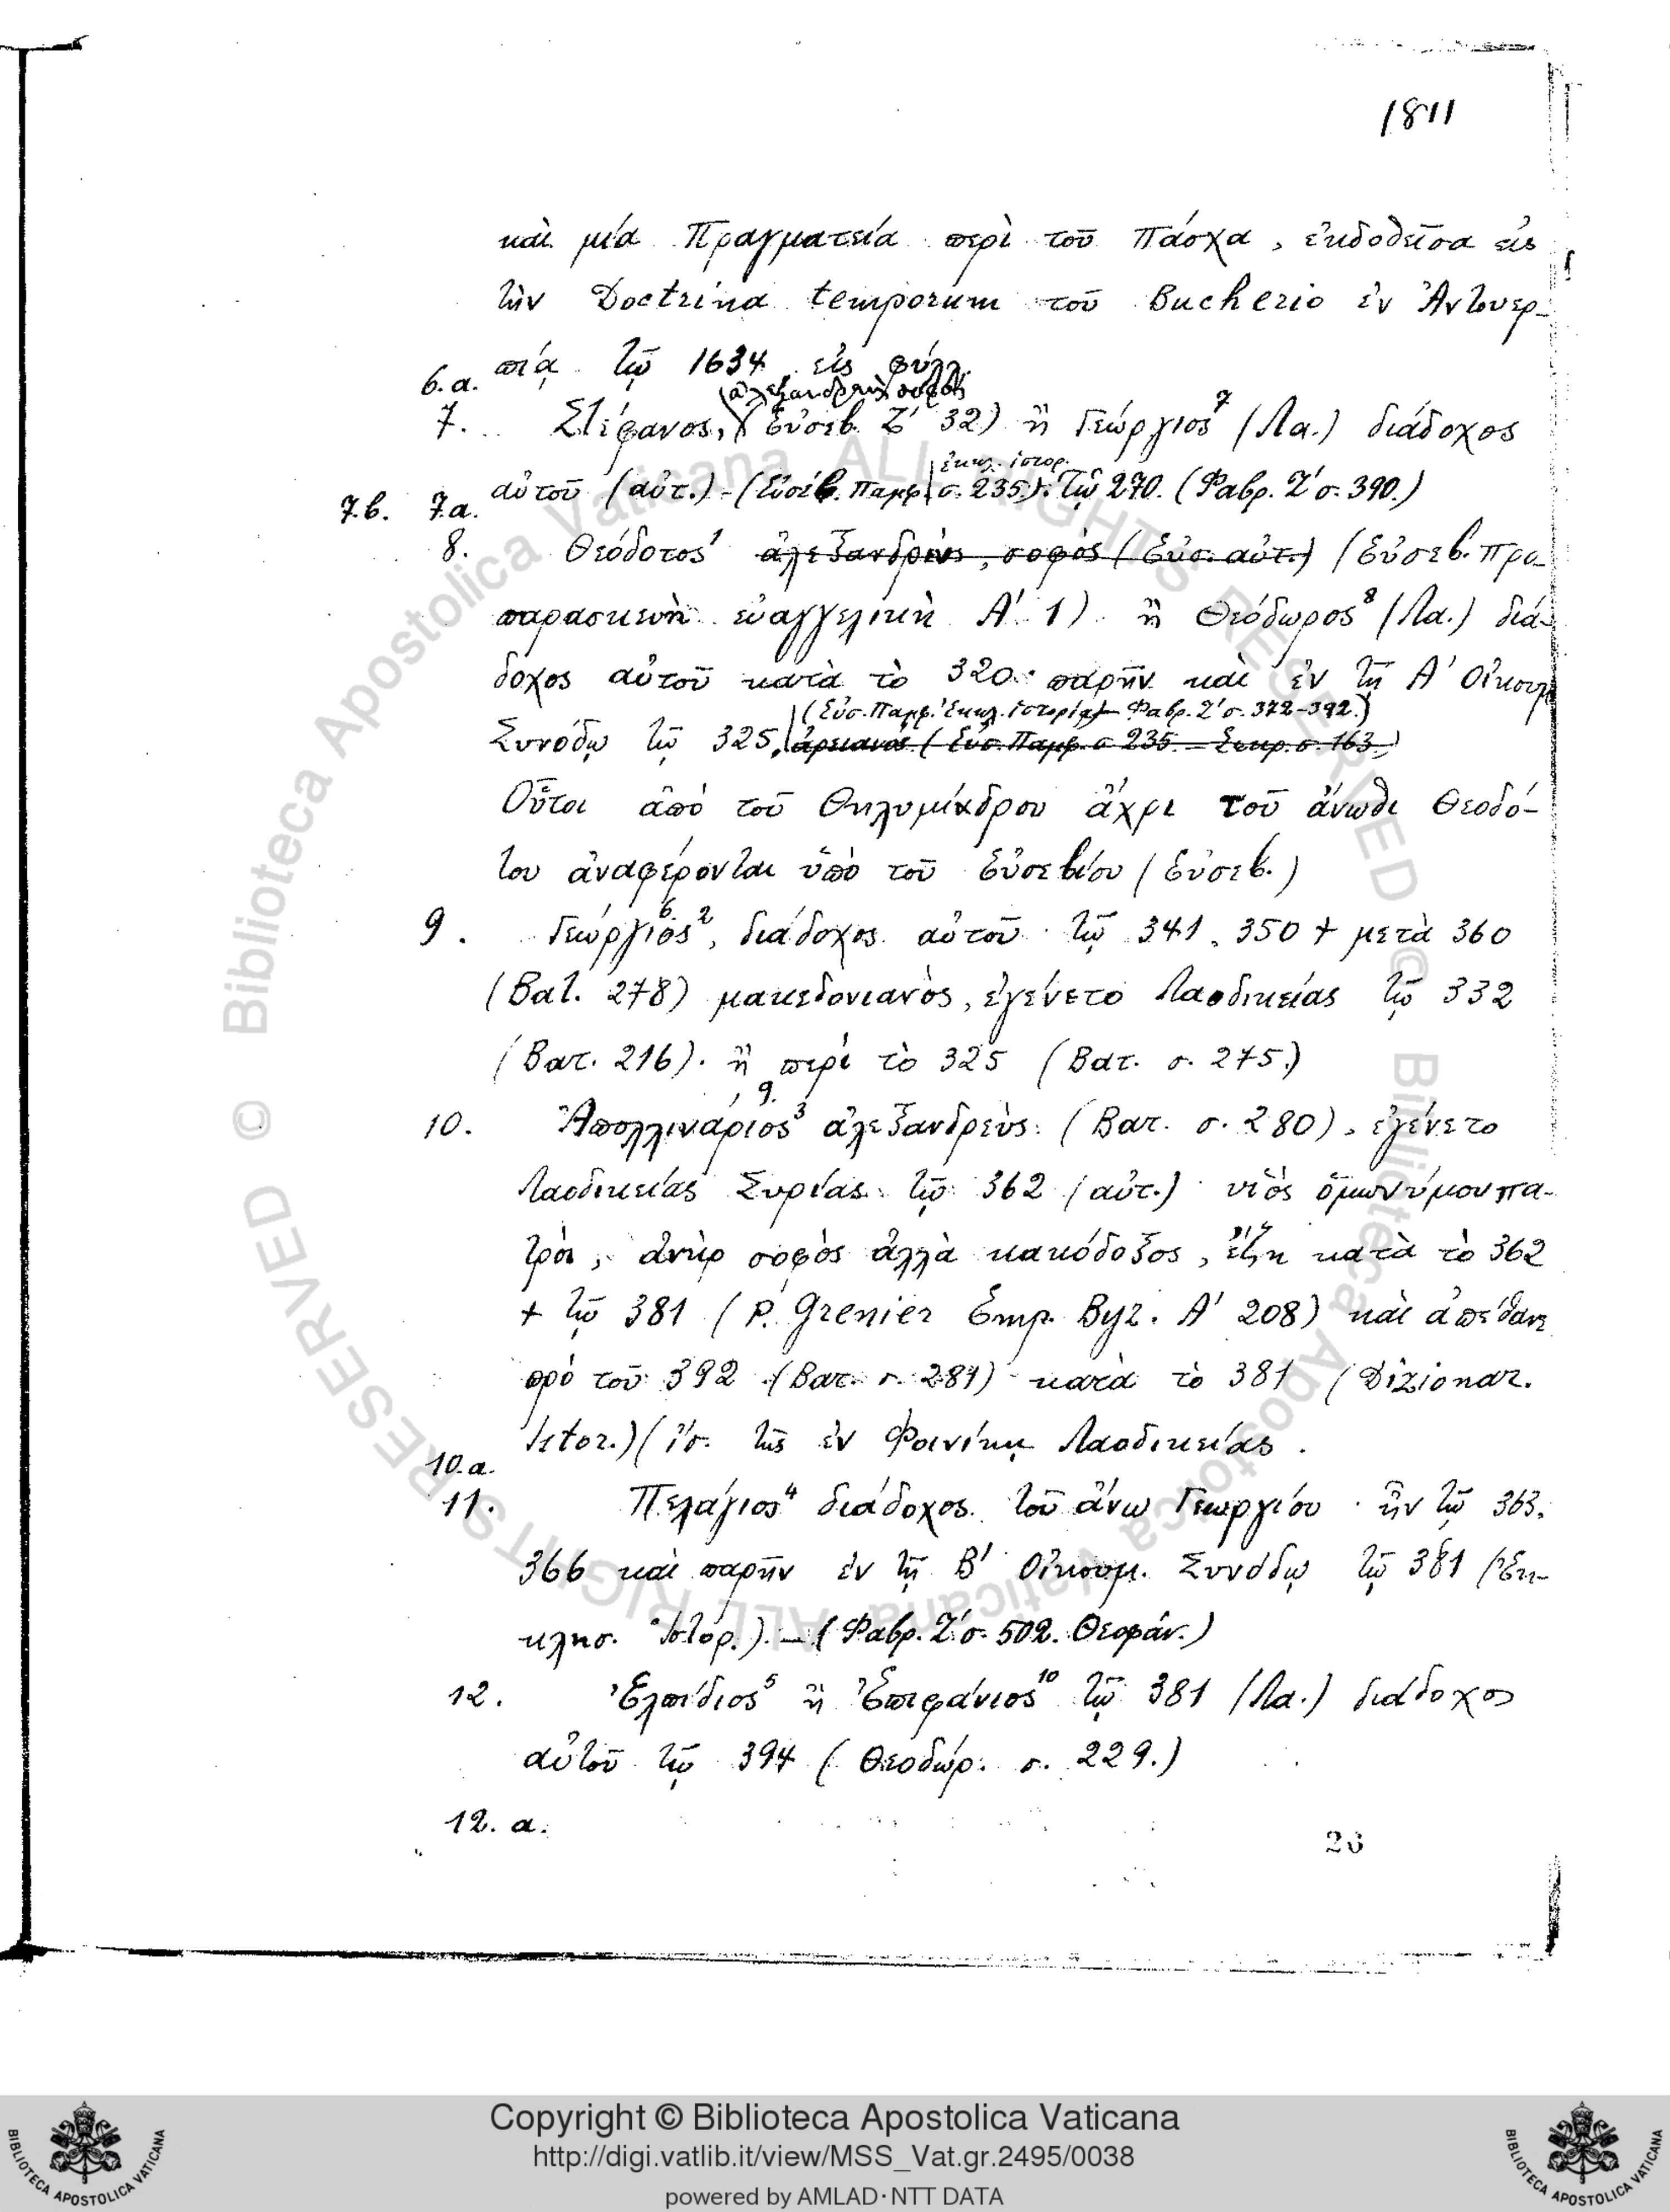 1811
καὶ μία Πραγματεία περὶ τοῦ Πάσχα, ἐκδοθεῖσα εἰς
τὴν Doctrina temporum τοῦ Bucherio ἐν Ἀντουερ-
πίᾳ τῷ 1634 εἰς φύλλ.
6.a.
(ἀλεξανδρεὺς σοφὸς
7. Στέφανος, (Εὐσεβ. Ζ' 32) ἢ Γεώργιος⁷ (Λα.) διάδοχος
ἐκκλ. ἱστορ.
7.b. 7.a. αὐτοῦ (αὐτ.) - (Εὐσέβ. Παμφ. σ. 235). τῷ 270. (Φαβρ. Ζ' σ. 390.)
8. Θεόδοτος¹ ἀλεξανδρεὺς, σοφὸς (Εὐσ. αὐτ.) (Εὐσεβ. προ-
παρασκευὴ εὐαγγελικὴ Α' 1) ἢ Θεόδωρος⁸ (Λα.) διά-
δοχος αὐτοῦ κατὰ τὸ 320. παρῆν καὶ ἐν τῇ Α' Οἰκουμ
(Εὐσ. Παμφ. Ἐκκλ. ἱστορία) - Φαβρ. Ζ' σ. 372-392.)
Συνόδῳ τῷ 325, ἀρειανὸς (Εὐσ. Παμφ. σ 235. - Σωκρ. σ. 163.)
Οὗτοι ἀπὸ τοῦ Θηλυμίνδρου ἄχρι τοῦ ἄνωθι Θεοδό-
του ἀναφέρονται ὑπὸ τοῦ Εὐσεβίου (Εὐσεβ.)
9. Γεώργιος⁶ ², διάδοχος αὐτοῦ τῷ 341. 350 + μετὰ 360
(Βατ. 278) μακεδονιανὸς, ἐγένετο Λαοδικείας τῷ 332
(Βατ. 216). ἢ περὶ τὸ 325 (Βατ. σ. 275.)
10. Ἀπολλινάριος⁹ ³ ἀλεξανδρεὺς (Βατ. σ. 280), ἐγένετο
Λαοδικείας Συρίας τῷ 362 (αὐτ.) υἱὸς ὁμωνύμου πα-
τρὸς, ἀνὴρ σοφὸς ἀλλὰ κακόδοξος, ἔζη κατὰ τὸ 362
+ τῷ 381 (P. Grenier Emp. Byz. Α' 208) καὶ ἀπέθανε
πρὸ τοῦ 392 (Βατ. σ. 281) κατὰ τὸ 381 (Dizionar.
Istor.) (ἴσ. τῆς ἐν Φοινίκῃ Λαοδικείας.
10.a.
11. Πελάγιος⁴ διάδοχος τοῦ ἄνω Γεωργίου · ἦν τῷ 363.
366 καὶ παρῆν ἐν τῇ Β' Οἰκουμ. Συνόδῳ τῷ 381 (Ἐκ-
κλησ. Ἱστορ.). - (Φαβρ. Ζ' σ. 502. Θεοφάν.)
12. Ἐλπίδιος⁵ ἢ Ἐπιφάνιος¹⁰ τῷ 381 (Λα.) διάδοχος
αὐτοῦ τῷ 394 (Θεοδώρ. σ. 229.)
12. a.
26
Copyright © Biblioteca Apostolica Vaticana
http://digi.vatlib.it/view/MSS_Vat.gr.2495/0038
powered by AMLAD·NTT DATA